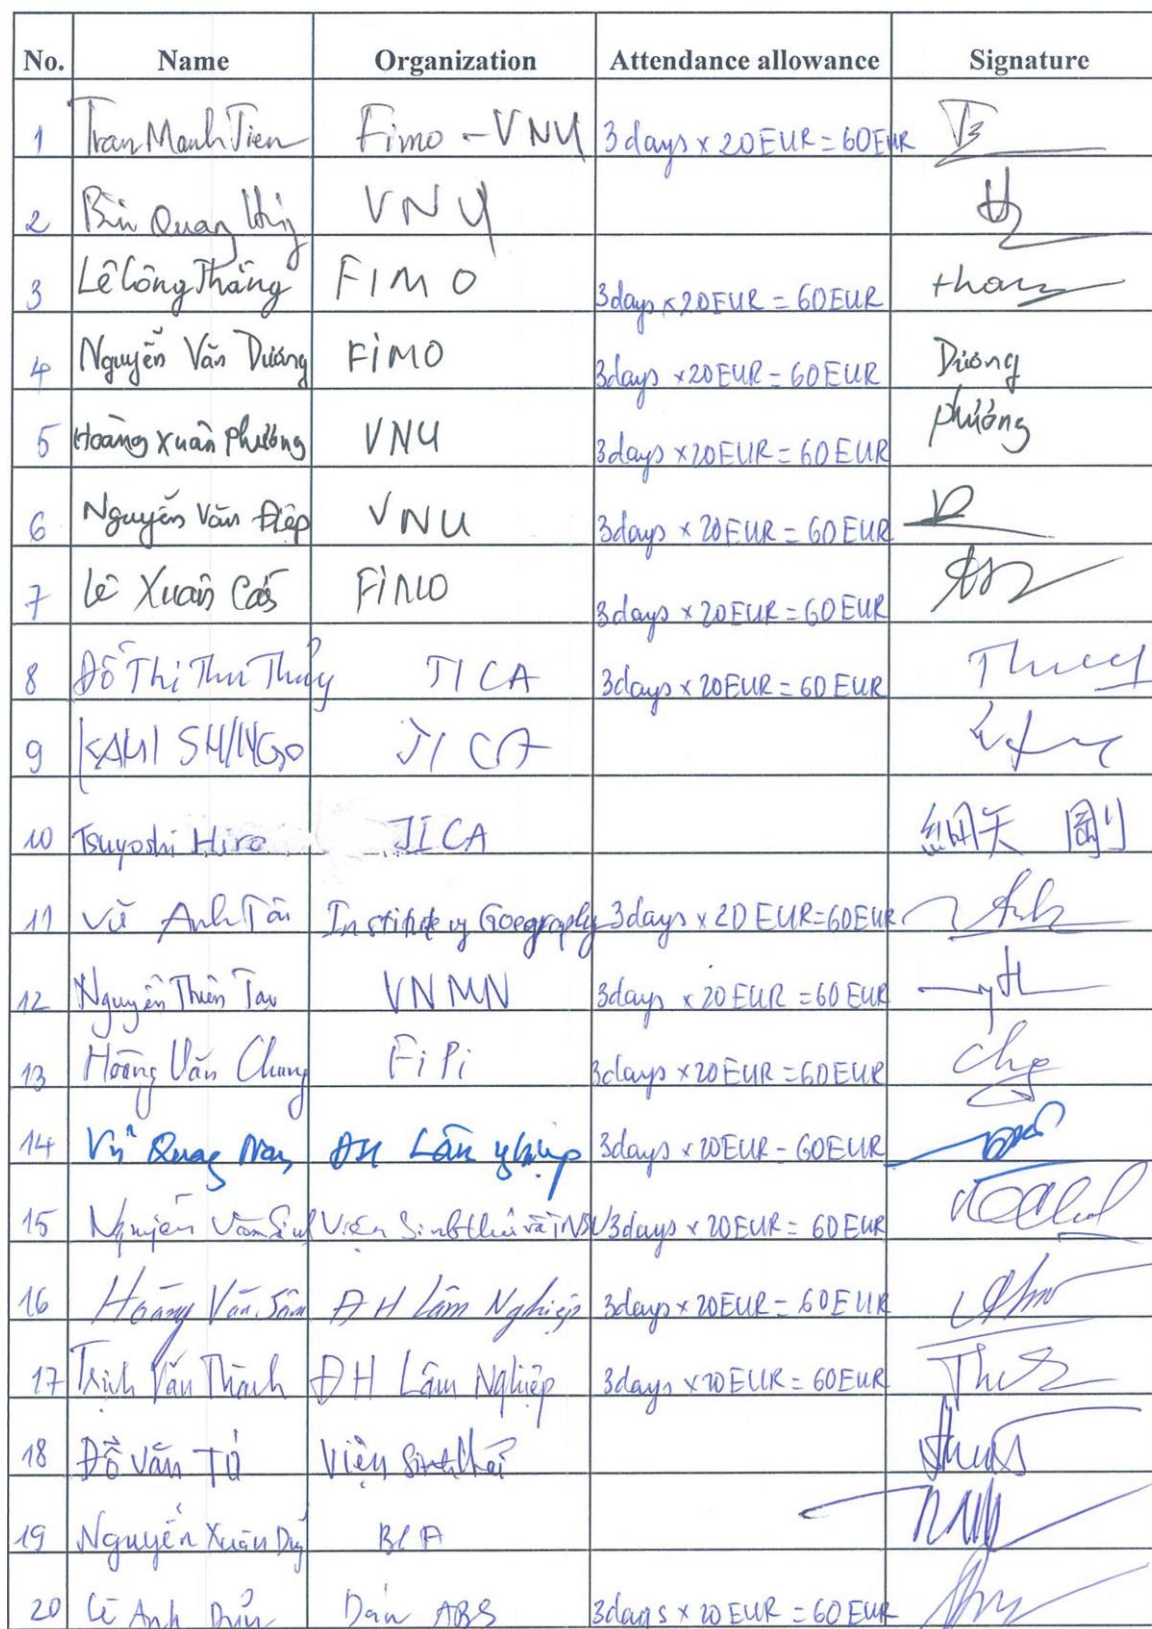 No. Name Organization Attendance allowance Signature
1 Tran Manh Tien Fimo - VNU 3 days x 20 EUR = 60 EUR
2 Bùi Quang Hưng VNU
3 Lê Công Thắng FIMO 3days x 20EUR = 60EUR thang
4 Nguyễn Văn Dương FIMO 3days x 20 EUR = 60 EUR Dương
5 Hoàng Xuân Phương VNU 3days x 20EUR = 60 EUR Phương
6 Nguyễn Văn Điệp VNU 3days x 20EUR = 60 EUR
7 Lê Xuân FIMO 3days x 20EUR = 60 EUR
8 Đỗ Thị Thu Thủy JICA 3days x 20EUR = 60 EUR Thuy
9 KAMI SHINGO JICA
10 Tsuyoshi Hiro JICA 剛
11 Vũ Anh Tài Institute of Goegraply 3days x 20 EUR=60EUR
12 Nguyễn Thiên Tạo VNMN 3days x 20 EUR = 60 EUR
13 Hoàng Văn Chung FiPi 3days x 20 EUR = 60EUR
14 Vũ Quang Nam ĐH Lâm nghiệp 3days x 20EUR = 60EUR
15 Nguyễn Văn Sinh Viện Sinh thái và TNSV 3days x 20EUR = 60 EUR
16 Hoàng Văn Sâm ĐH Lâm Nghiệp 3days x 20EUR = 60EUR
17 Trịnh Văn Thành ĐH Lâm Nghiệp 3days x 20 EUR = 60EUR
18 Đỗ Văn Tứ Viện Sinh thái
19 Nguyễn Xuân BCA
20 Lê Anh ABS 3days x 20 EUR = 60EUR